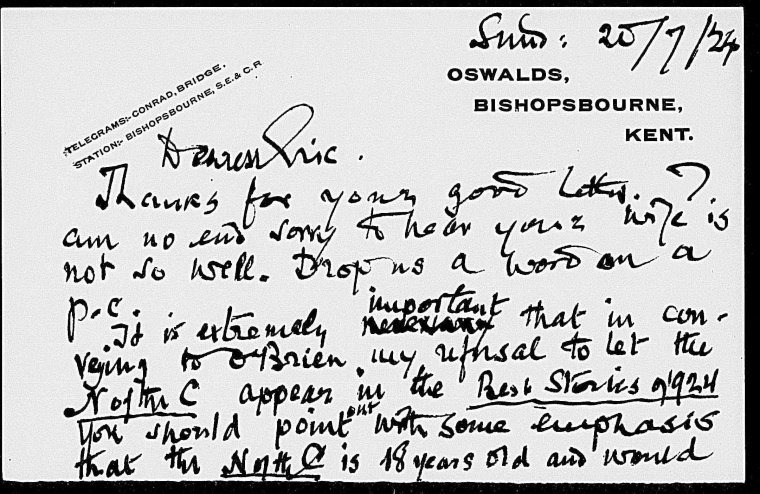 Sund: 20/7/24
OSWALDS,
BISHOPSBOURNE,
KENT.
TELEGRAMS:- CONRAD, BRIDGE.
STATION:- BISHOPSBOURNE, S.E.& C.R
Dearest Eric.
Thanks for your good letter. I
am no end sorry to hear your wife is
not so well. Drop us a word on a
p.c.
It is extremely important that in con-
veying to O'Brien my refusal to let the
N of the C appear in the Best Stories of 1924
you should point out with some emphasis
that the N of the C is 18 years old and would